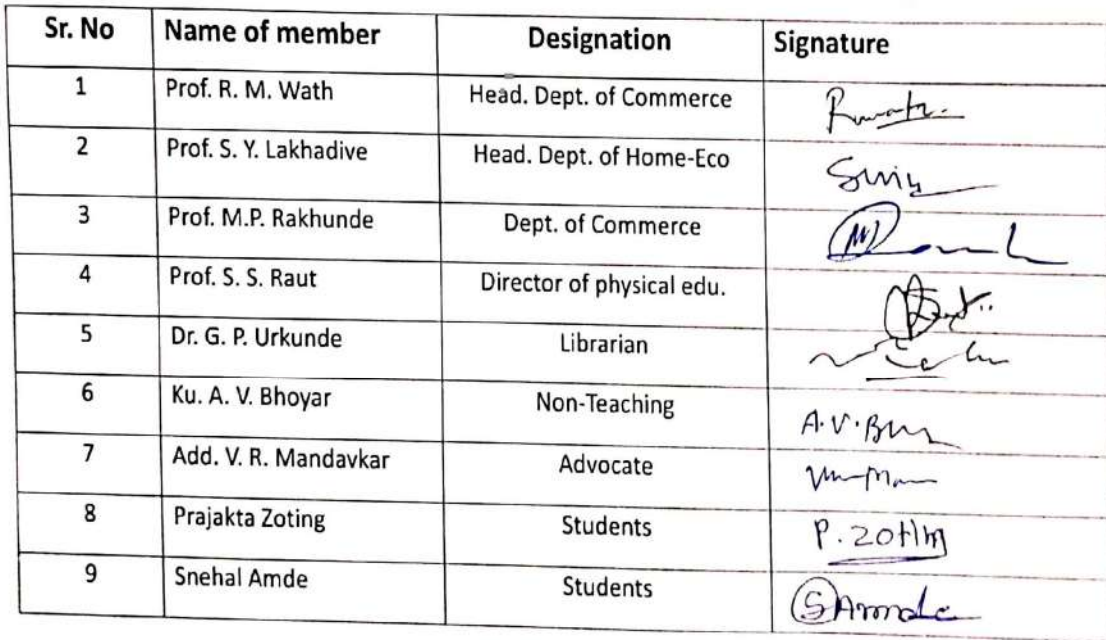 Sr. No Name of member Designation Signature
1 Prof. R. M. Wath Head. Dept. of Commerce
2 Prof. S. Y. Lakhadive Head. Dept. of Home-Eco
3 Prof. M.P. Rakhunde Dept. of Commerce
4 Prof. S. S. Raut Director of physical edu.
5 Dr. G. P. Urkunde Librarian
6 Ku. A. V. Bhoyar Non-Teaching A.V.
7 Add. V. R. Mandavkar Advocate
8 Prajakta Zoting Students P.
9 Snehal Amde Students SAmde